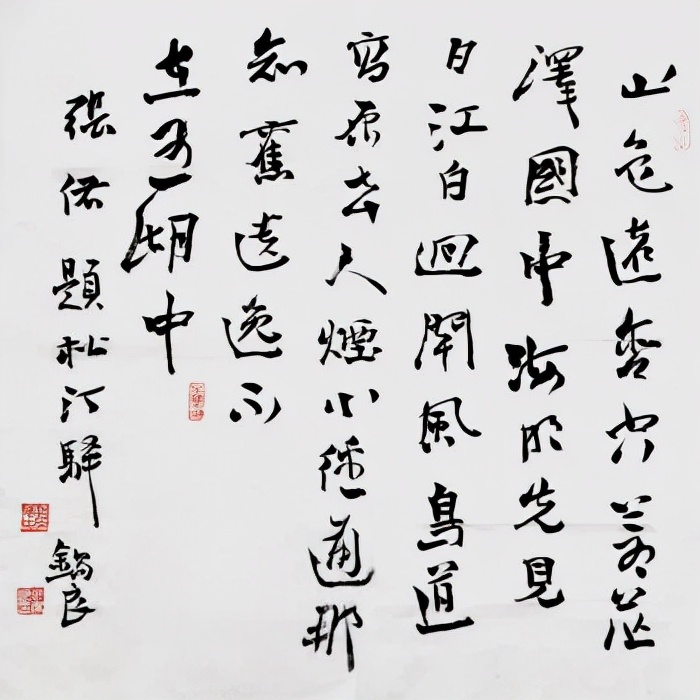 山色遠含空蒼茫
澤國東海明先見
日江白迥聞風鳥道
高原去人煙小徑通那
知舊遺逸不
在五湖中
張祜題松汀驛
良